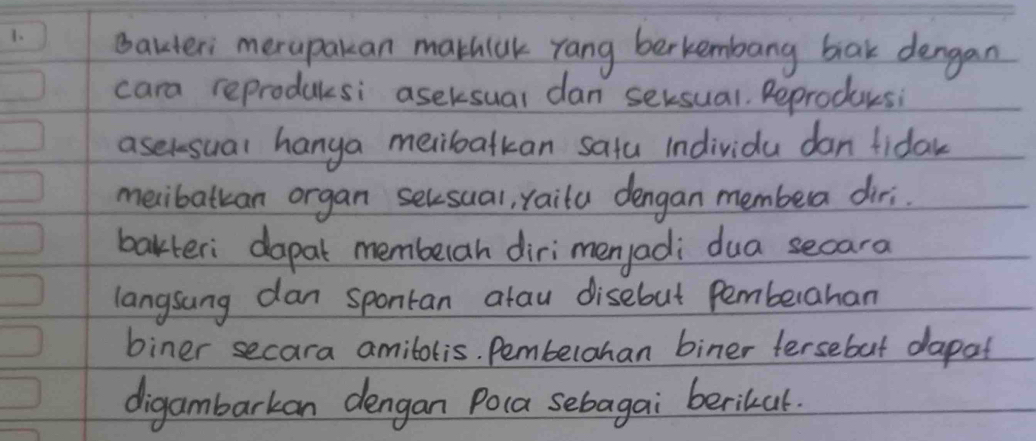 1. Bakteri merupakan makhluk yang berkembang biak dengan
cara reproduksi aseksual dan seksual. Reproduksi
aseksual hanya melibatkan satu individu dan tidak
melibatkan organ seksual, yaitu dengan membela diri.
bakteri dapat membelah diri menjadi dua secara
langsung dan spontan atau disebut Pembelahan
biner secara amitotis. Pembelahan biner tersebut dapat
digambarkan dengan Pola sebagai berikut.